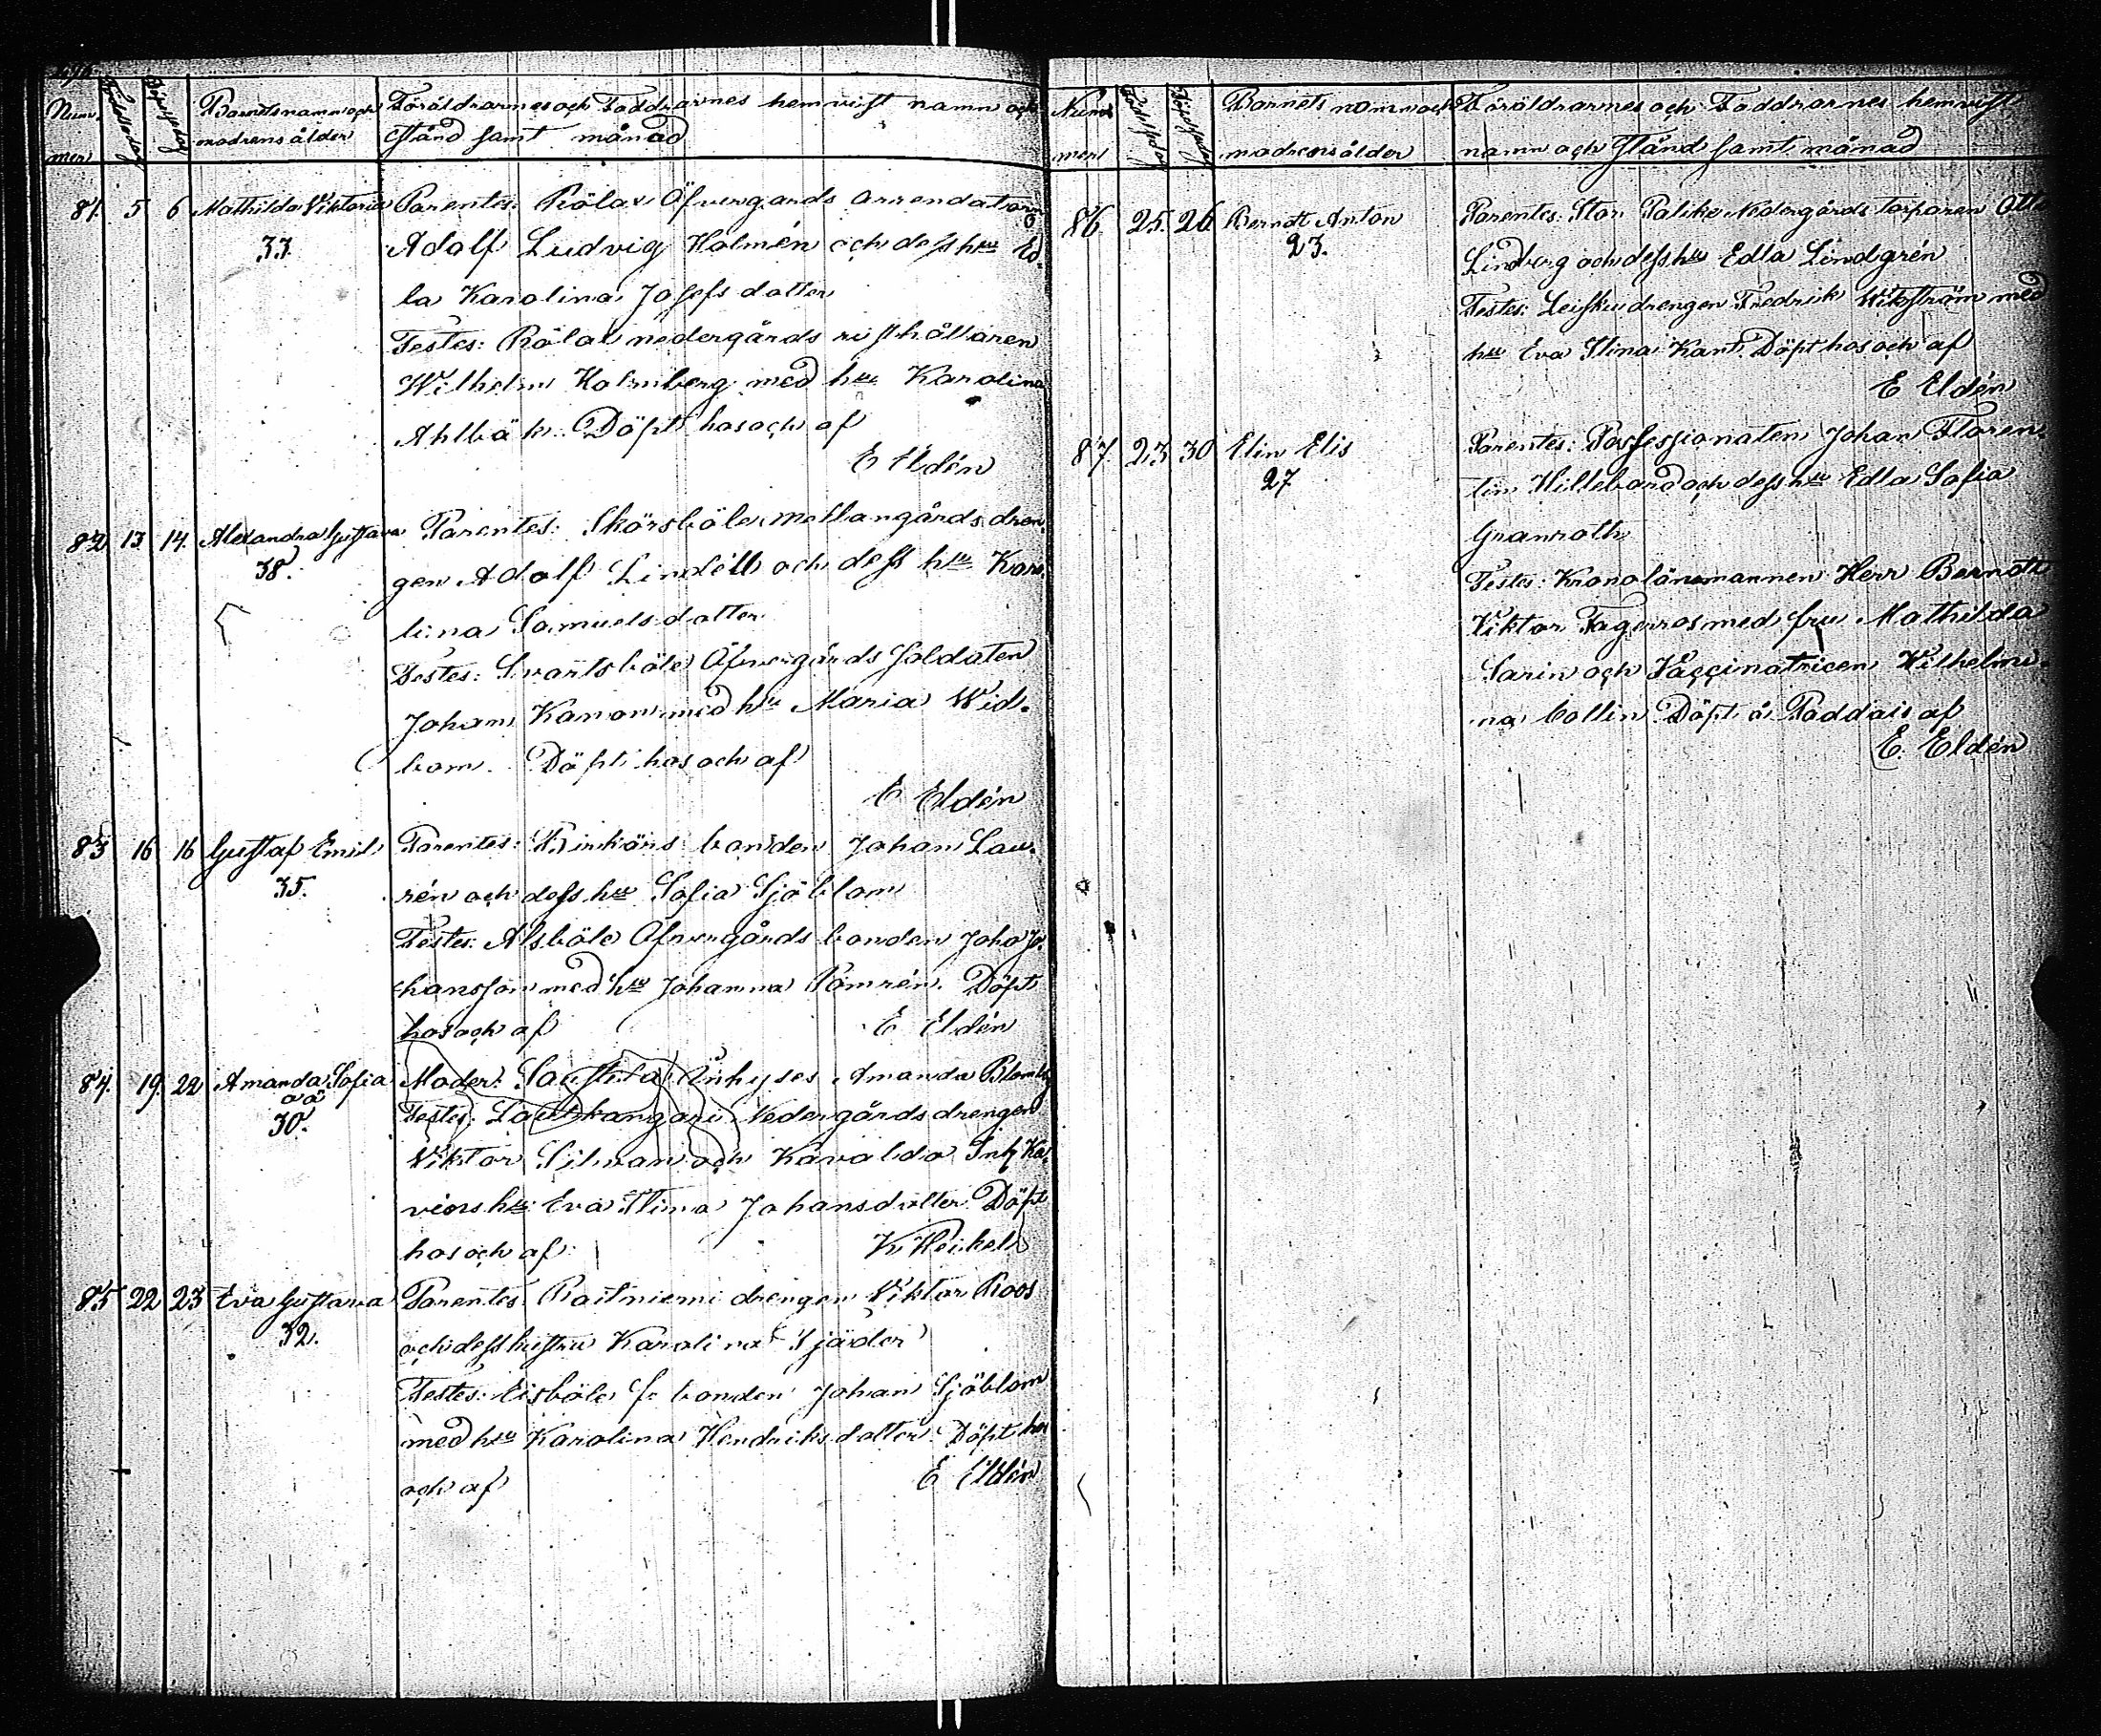 Num- mer
Födelsedag
Döpelsedag
Barnets namn och modrens ålder
Föräldrarnes och Faddrarnes hemvist namn och
stånd samt månad
81. 5 6 Mathilda Viktoria Parentes: Rölax Öfvergårds arrendatorn
33. Adolf Ludvig Holmén och dess hu Ed-
la Karolina Josefsdotter
Testes: Rölax nedergårds rusthållaren
Wilhelm Holmberg med hu Karolina
Ahlbäk. Döpt hos och af
E Eldén
82 13 14. Alexandra Gustava Parentes: Skörsböle mellangårds dren-
38. gen Adolf Lindell och dess hu Karo-
lina Samuelsdotter
Testes: Svartsböle Öfvergårds soldaten
Johan Kanon med hu Maria Wid-
bom. Döpt hos och af
E Eldén
83 16 16 Gustaf Emil Parentes: bonden Johan Lau-
35. rén och dess hu Sofia Sjöblom
Testes: Alsböle Öfvergårds bonden Joha Jo-
hansson med hu Johanna Pomrén. Döpt
hos och af E Eldén
84. 19. 22 Amanda Sofia Moder: Inhyses Amanda Blomberg
oä
30. Testes: Nedergårds drengen
Viktor Silvan och Kavaldo Inh
hu Eva Stina Johansdotter Döpt
hos och af K Heikel
85 22 23 Eva Gustava Parentes Raitniemi drengen Viktor Roos
32. och dess hustru Karolina Sjäder
Testes: Eisböle bonden Johan Sjöblom
med hu Karolina Hendriksdotter. Döpt hos
och af E Eldén
Num- mer
Födelsedag
Döpelsedag
Barnets namn och modrens ålder
Föräldrarnes och Faddrarnes hemvist
namn och stånd samt månad
86 25. 26 Berndt Anton Parentes: Stor Palike Nedergårds torparen Otto
23. Lindberg och dess hu Edla Lindgrén
Testes: Leisku drengen Fredrik Wikström med
hu Eva Stina Kant. Döpt hos och af
E Eldén
87. 23 30 Elin Elis Parentes: Possessionaten Johan Floren-
27 tin Hillebrand och dess hu Edla Sofia
Granroth
Testes: Kronolänsmannen Herr Berndt
Viktor Fagerros med fru Mathilda
Sarin och Vaccinatricen Wilhelmi-
na Collin Döpt å Paddais af
E. Eldén